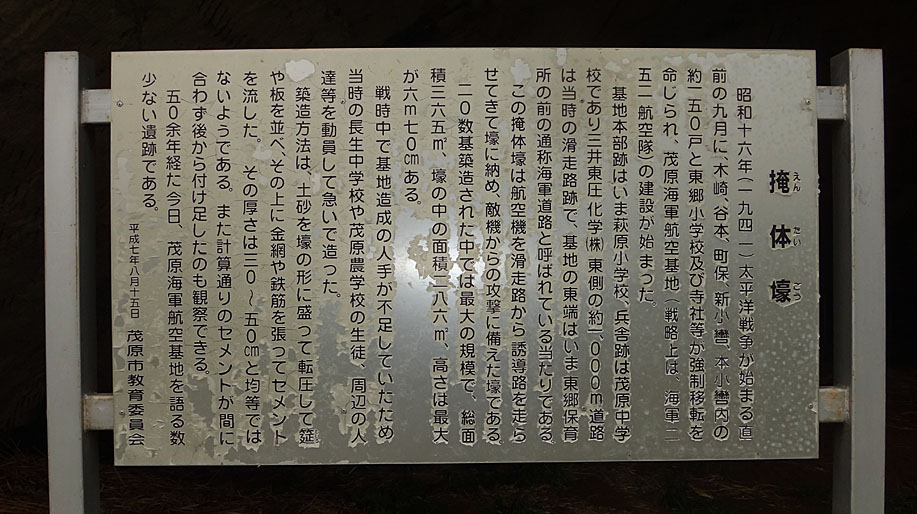 掩体壕
えんたいごう
昭和十六年(一九四一)太平洋戦争が始まる直
前の九月に、木崎、谷本、町保、新小轡、本小轡内の
約一五〇戸と東郷小学校及び寺社等が強制移転を
命じられ、茂原海軍航空基地(戦略上は、海軍二
五二航空隊)の建設が始まった。
基地本部跡はいま萩原小学校、兵舎跡は茂原中学
校であり三井東圧化学(株)東側の約一、〇〇〇m道路
は当時の滑走路跡で、基地の東端はいま東郷保育
所の前の通称海軍道路と呼ばれている当たりである。
この掩体壕は航空機を滑走路から誘導路を走ら
せてきて壕に納め、敵機からの攻撃に備えた壕である。
二〇数基築造された中では最大の規模で、総面
積三六五㎡、壕の中の面積二八六㎡、高さは最大
が六m七〇㎝ある。
戦時中で基地造成の人手が不足していたため
当時の長生中学校や茂原農学校の生徒、周辺の人
達等を動員して急いで造った。
築造方法は、土砂を壕の形に盛って転圧して筵
や板を並べ、その上に金網や鉄筋を張ってセメント
を流した。その厚さは三〇～五〇㎝と均等では
ないようである。また計算通りのセメントが間に
合わず後から付け足したのも観察できる。
五〇余年経た今日、茂原海軍航空基地を語る数
少ない遺跡である。
平成七年八月十五日 茂原市教育委員会